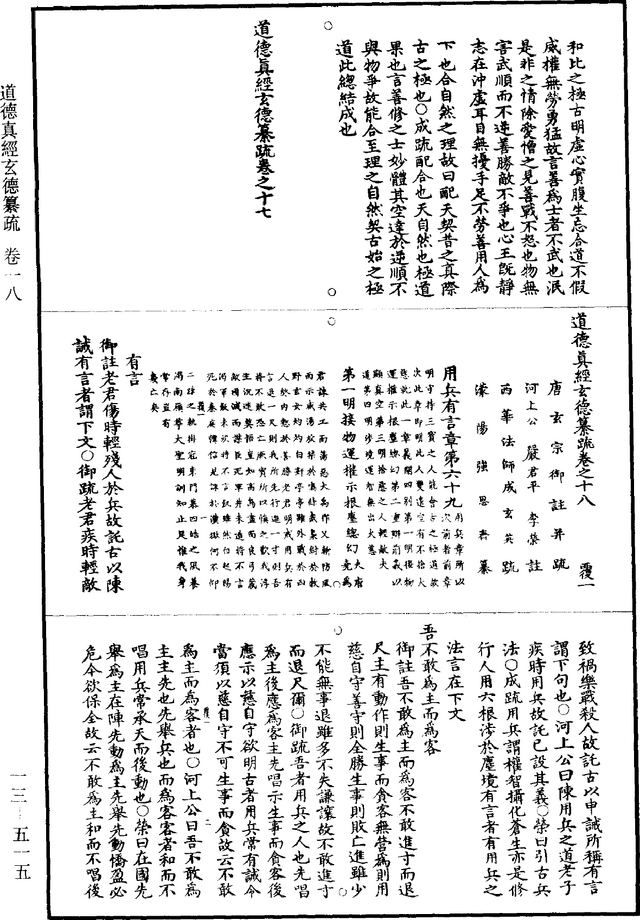 道德真經玄德纂疏 卷一八
一三—五一五
和比之極古明虛心實腹坐忘合道不假
威權無勞勇猛故言善為士者不武也泯
是非之情除愛憎之見善戰不怒也物無
害武順而不逆善勝敵不爭也心王既靜
志在沖虛耳目無擾手足不勞善用人為
下也合自然之理故曰配天契昔之真際
古之極也○成疏配合也天自然也極道
果也言善修之士妙體其空達於逆順不
與物爭故能合至理之自然契古始之極
道此總結成也
道德真經玄德纂疏卷之十七
道德真經玄德纂疏卷之十八 覆一
唐玄宗御註并疏
河上公 嚴君平 李榮註
西華法師成玄英疏
濛陽強思齊纂
用兵有言章第六十九 用兵章所以次前者前章
明守持三寶之人能會古之極道故
次此章即明此人雙遣空有不捨大
慈就此一章義開四別第一明接物
運權示振塵總幻第二重辯前義以
顯真空第三明捨慈之人輕敵失
道第四明珍境運智無出大慈
第一明接物運權示振塵總幻
有言
御註老君傷時輕殘人於兵故託古以陳
誡有言者謂下文○御疏老君疾時輕敵
致禍樂戰殺人故託古以申誡所稱有言
謂下句也○河上公曰陳用兵之道老子
疾時用兵故託已設其義○榮曰引古兵
法○成疏用兵謂權智攝化蒼生亦是修
行人用六根涉於塵境有言者有用兵之
法言在下文
吾不敢為主而為客
御註吾不敢為主而為客不敢進寸而退
尺主有動作則生事而貪客無營為則用
慈自守善守則全勝生事則敗亡進雖少
不能無事退雖多不失謙讓故不敢進寸
而退尺爾○御疏吾者用兵之人也先唱
為主後應為客主先唱示生事而貪客後
應示以慈自守欲明古者用兵常有誡令
當須以慈自守不可生事而貪故云不敢
為主而為客者也○河上公曰吾不敢為
主主先也先舉兵也而為客客者和而不
唱用兵常承天而後動也○榮曰在國先
舉為主在陣先動為主先舉先動憍盈必
危今欲保全故云不敢為主和而不唱後